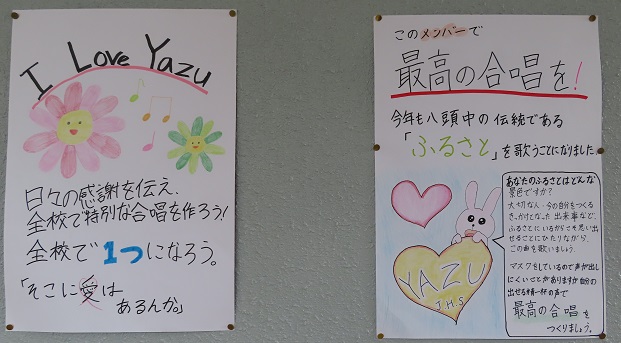 I Love Yazu
日々の感謝を伝え、
全校で特別な合唱を作ろう!
全校で1つになろう。
「そこに愛は
あるんか。」
このメンバーで
最高の合唱を!
今年も八頭中の伝統である
「ふるさと」を歌うことになりました
あなたのふるさとはどんな
景色ですか?
大切な人、今の自分をつくる
きっかけとなった出来事など、
ふるさとにいるからこそ思い出
せることにひたりながら
この曲を歌いましょう。
マスクをしているので声が出し
にくいことがありますが自分の
出せる精一杯の声で
最高の合唱を
つくりましょう。
YAZU
J.H.S